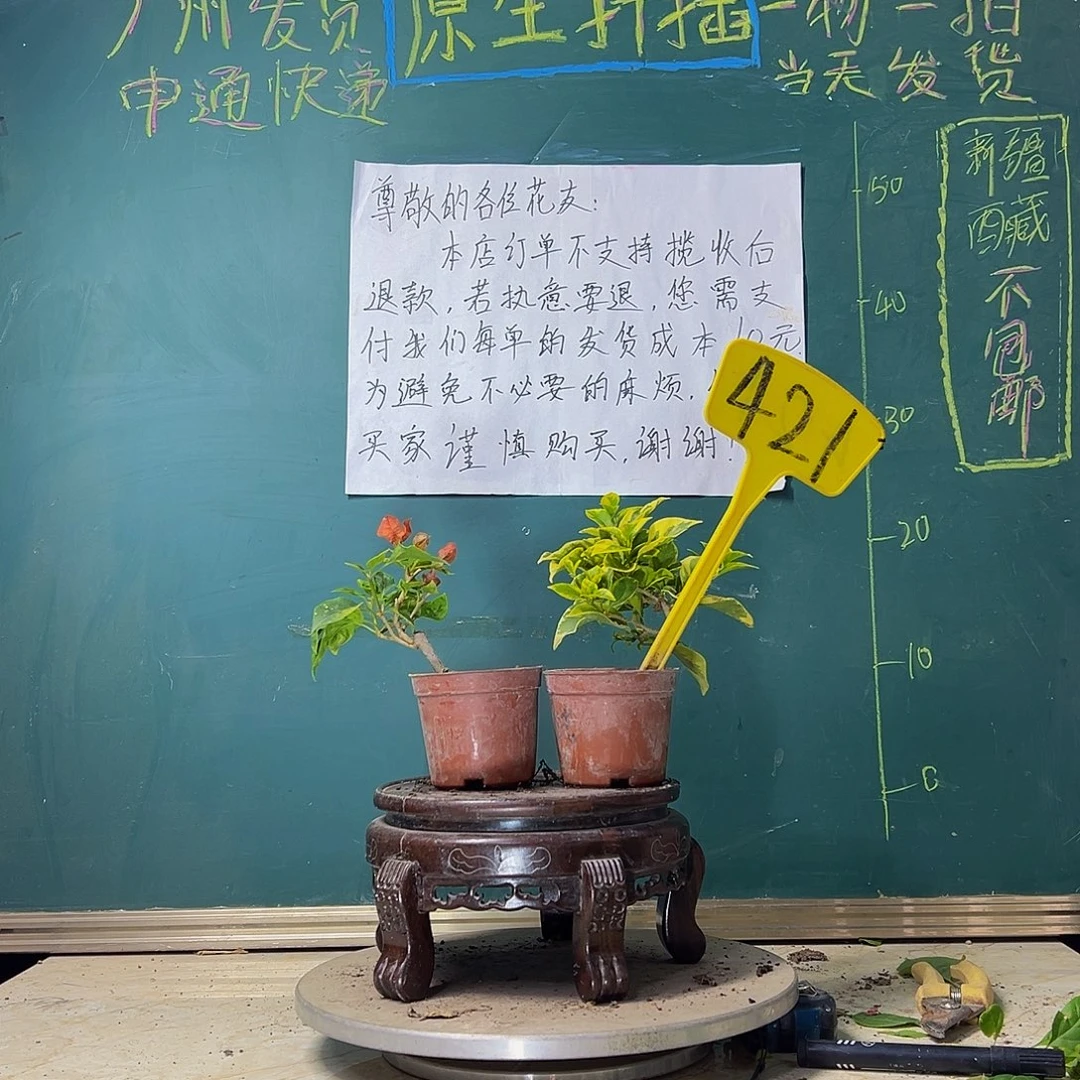 广州发货
原生扦插
一物一拍
申通快递
当天发货
尊敬的各位花友:
本店订单不支持揽收后
退款,若执意要退,您需支
付我们每单的发货成本10元
为避免不必要的麻烦,
买家谨慎购买,谢谢!
421
50
40
30
20
10
0
新疆
西藏
不
包
邮